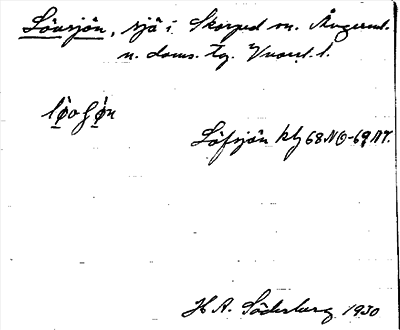 Lövsjön, sjö i Skorped sn. Ångerml.
n. doms. tg. Vnorrl. l.
Löfsjön kbl 68 NO-69 NV.
H A. Söderberg 1930